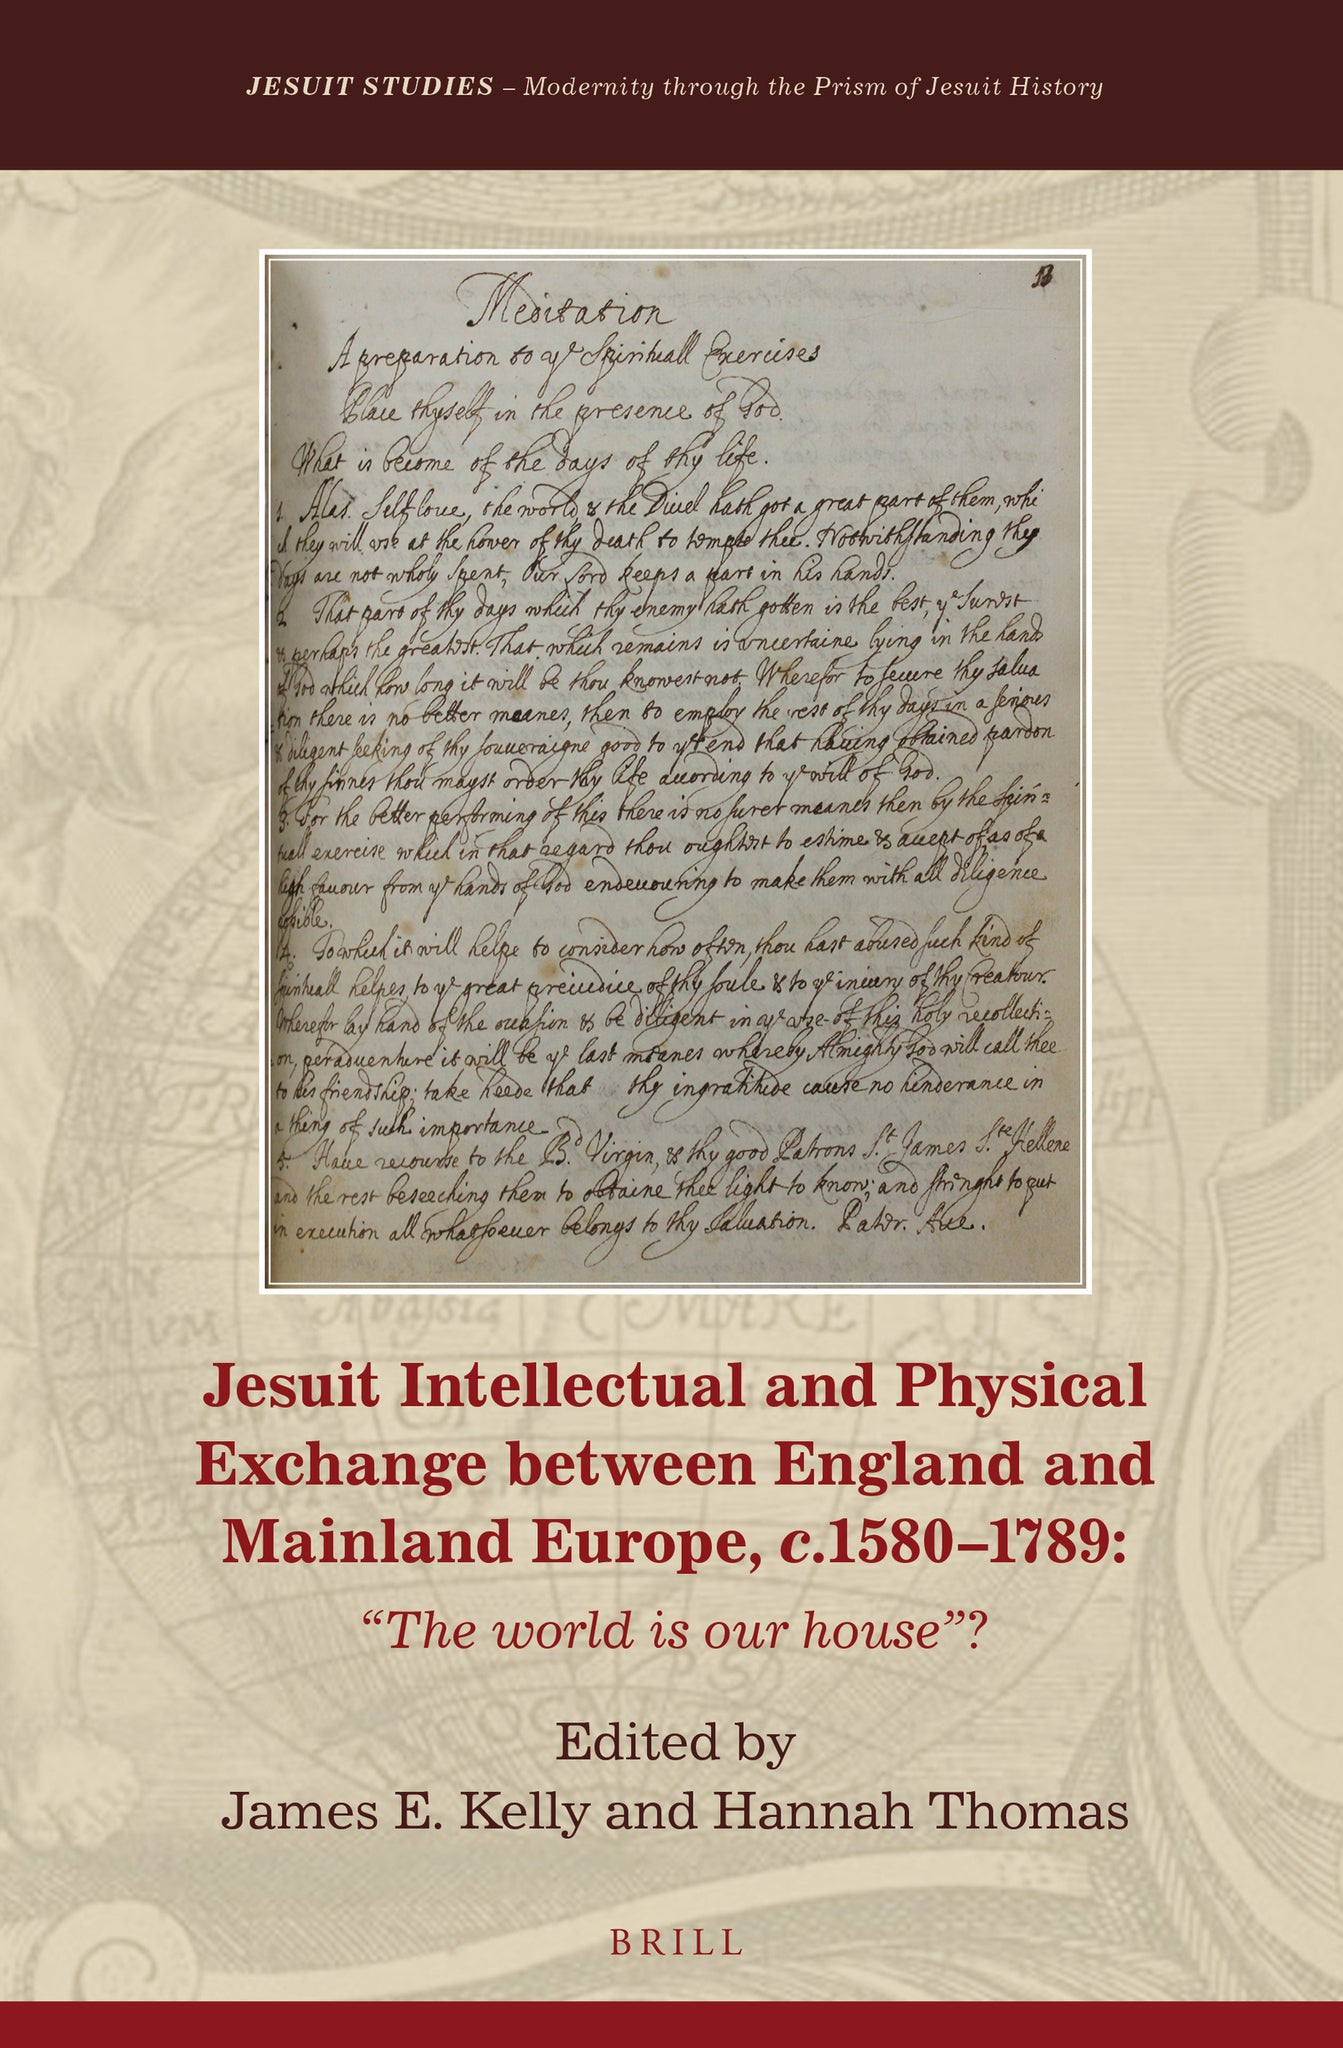 JESUIT STUDIES – Modernity through the Prism of Jesuit History
13
Meditation
A preparation to yᵉ Spirituall Exercises
Place thyself in the presence of God.
What is become of the days of thy life.
1. Alas. Self loue, the world & the Diuel hath got a great part of them, whi
ch they will vse at the hower of thy death to tempte thee. Notwithstanding thy
days are not wholy spent, Our Lord keeps a part in his hands.
2 That part of thy days which thy enemy hath gotten is the best, yᵉ surest
& perhaps the greatest. That which remains is vncertaine lying in the hands
of God which how long it will be thou knowest not. Wherefor to secure thy salua
tion there is no better meanes, then to employ the rest of thy days in a serious
& diligent seeking of thy souueraigne good to yᵗ end that hauing obtained pardon
of thy sinnes thou mayst order thy life according to yᵉ will of God.
3. For the better performing of this there is no surer meanes then by the spiri=
tuall exercise which in that regard thou oughtest to estime & accept of as of a
high fauour from yᵉ hands of God endeuouring to make them with all diligence
posible.
4. To which it will helpe to consider how often, thou hast abused such kind of
spirituall helpes, to yᵉ great preiudice of thy soule & to yᵉ iniury of thy Creatour.
Wherefor lay hand of the occasion & be diligent in yᵉ vse of this holy recollecti=
on, peraduenture it will be yᵉ last meanes whereby Almighty God will call thee
to his friendship; take heede that thy ingratitude cause no hinderance in
a thing of such importance
5. Haue recourse to the Bᵈ. Virgin, & thy good Patrons Sᵗ James Sᵗᵉ Hellene
and the rest beseeching them to obtaine thee light to know; and strenght to put
in execution all whatsoeuer belongs to thy saluation. Pater. Aue.
CAN
Abassia
MARE
Jesuit Intellectual and Physical
Exchange between England and
Mainland Europe, c.1580–1789:
“The world is our house”?
Edited by
James E. Kelly and Hannah Thomas
BRILL